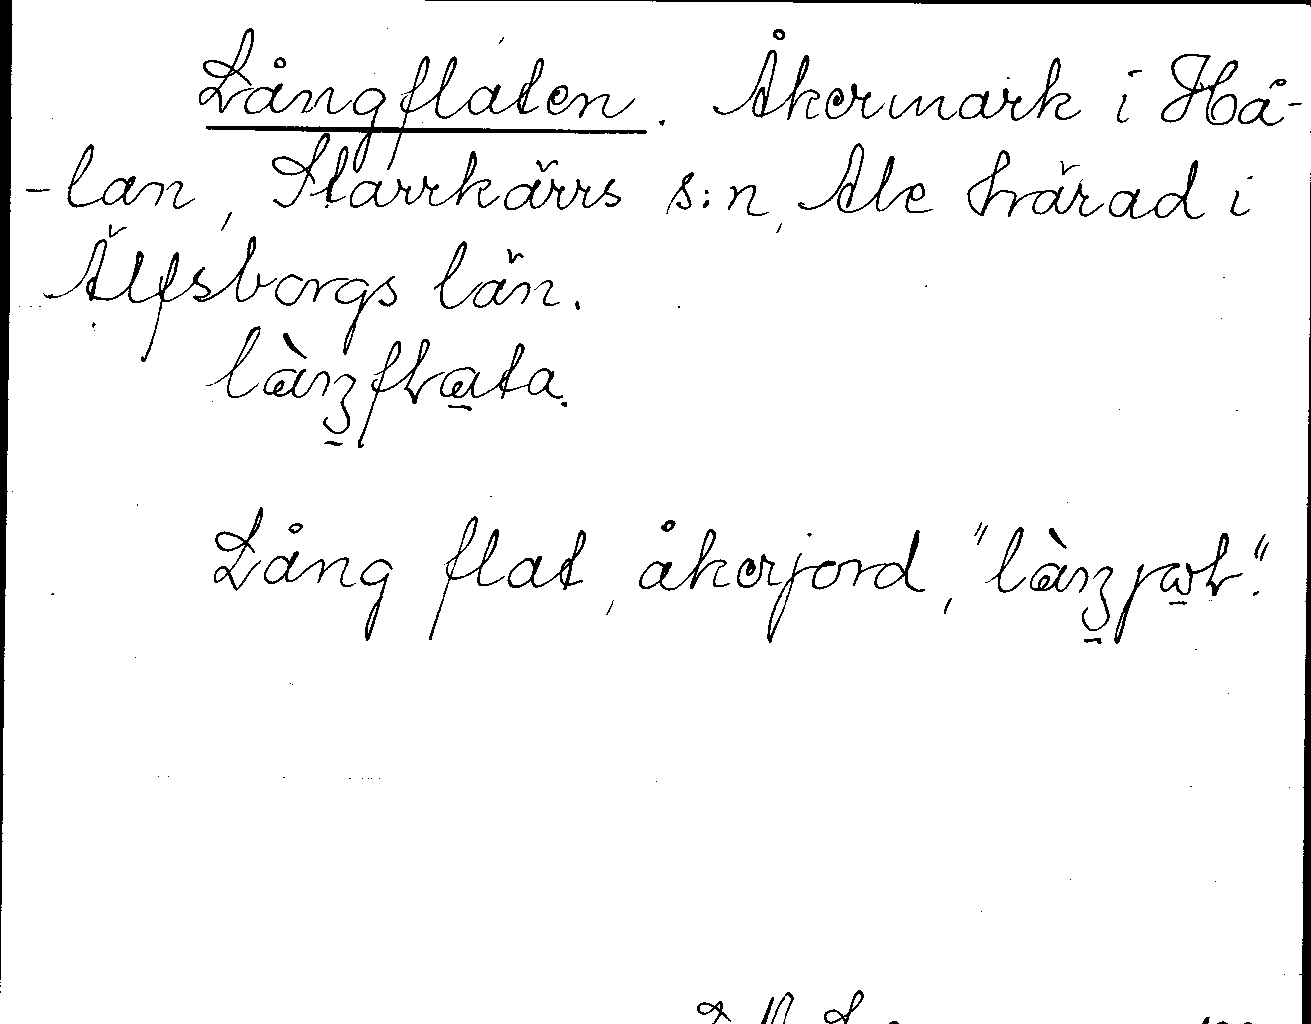 Långflaten. Åkermark i Hå-
-lan, Starrkärrs s:n, Ale härad i
Älfsborgs län.
Lång flat, åkerjord,